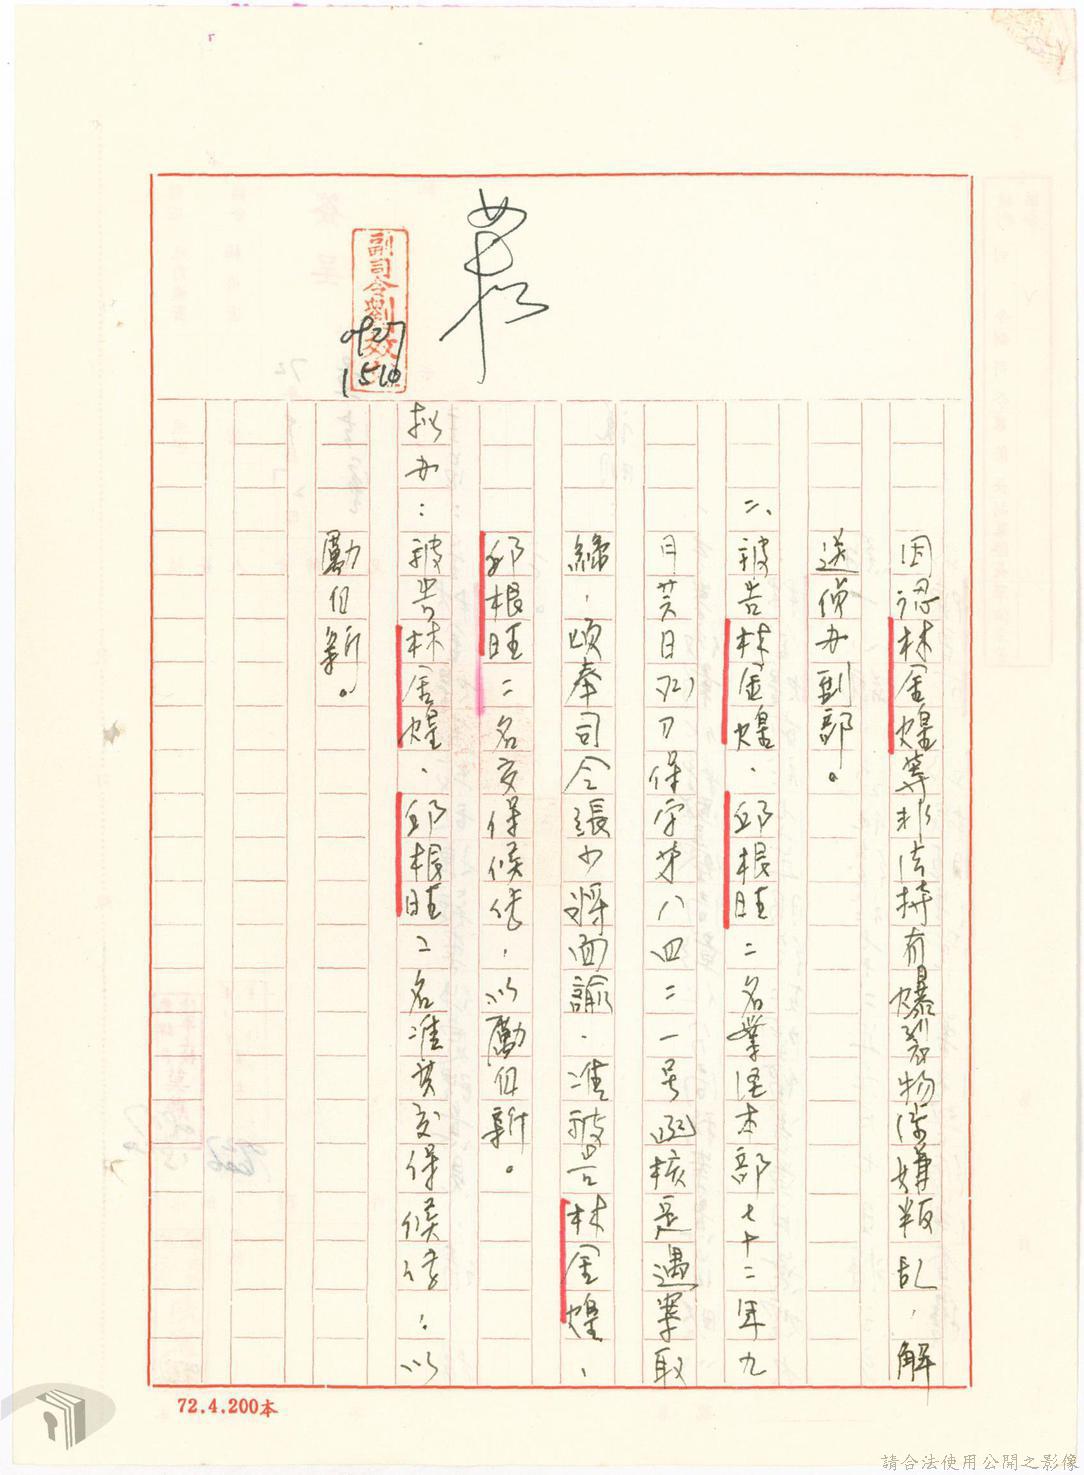 副司令劉
0927
1510
因認林金煌等非法持有爆裂物涉嫌叛乱,解
送偵办到部。
二、被告林金煌、邱根旺二名業经本部七十二年九
月廿日(72)刀保字第八四二一号函核定遇案取
締,頃奉司令張少將面諭,准被告林金煌、
邱根旺二名交保候傳,以勵自新。
拟办:被告林金煌、邱根旺二名准其交保候傳,以
勵自新。
72.4.200本
請合法使用公開之影像